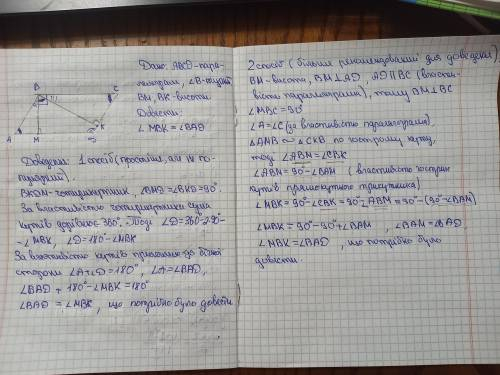 B
C
A
M
K
D
Дано: ABCD-пара-
лелограм, ∠B-тупий
BM, BK-висоти.
Довести:
∠MBK = ∠BAD
Доведення: 1 спосіб (простіший, але не по-
пулярний).
BKDM-чотирикутник, ∠BMD=∠BKD=90°.
За властивістю чотирикутника сума
кутів дорівнює 360°. Тоді ∠D=360°-2·90°-
-∠MBK, ∠D=180°-∠MBK
За властивістю кутів прилеглих до бічної
сторони ∠A+∠D=180°, ∠A=∠BAD,
∠BAD + 180°-∠MBK=180°
∠BAD = ∠MBK, що потрібно було довести
2 спосіб (більш рекомендований для доведення)
BM-висота, BM⊥AD, AD||BC (власти-
вість паралелограма), тому BM⊥BC
∠MBC=90°
∠A=∠C (за властивістю паралелограма),
△AMB ~ △CKB по гострому куту,
тоді ∠ABM=∠CBK
∠ABM=90°-∠BAM (властивість гострих
кутів прямокутного трикутника)
∠MBK=90°-∠CBK=90°-∠ABM=90°-(90°-∠BAM)
∠MBK=90°-90°+∠BAM, ∠BAM=∠BAD,
∠MBK=∠BAD, що потрібно було
довести.